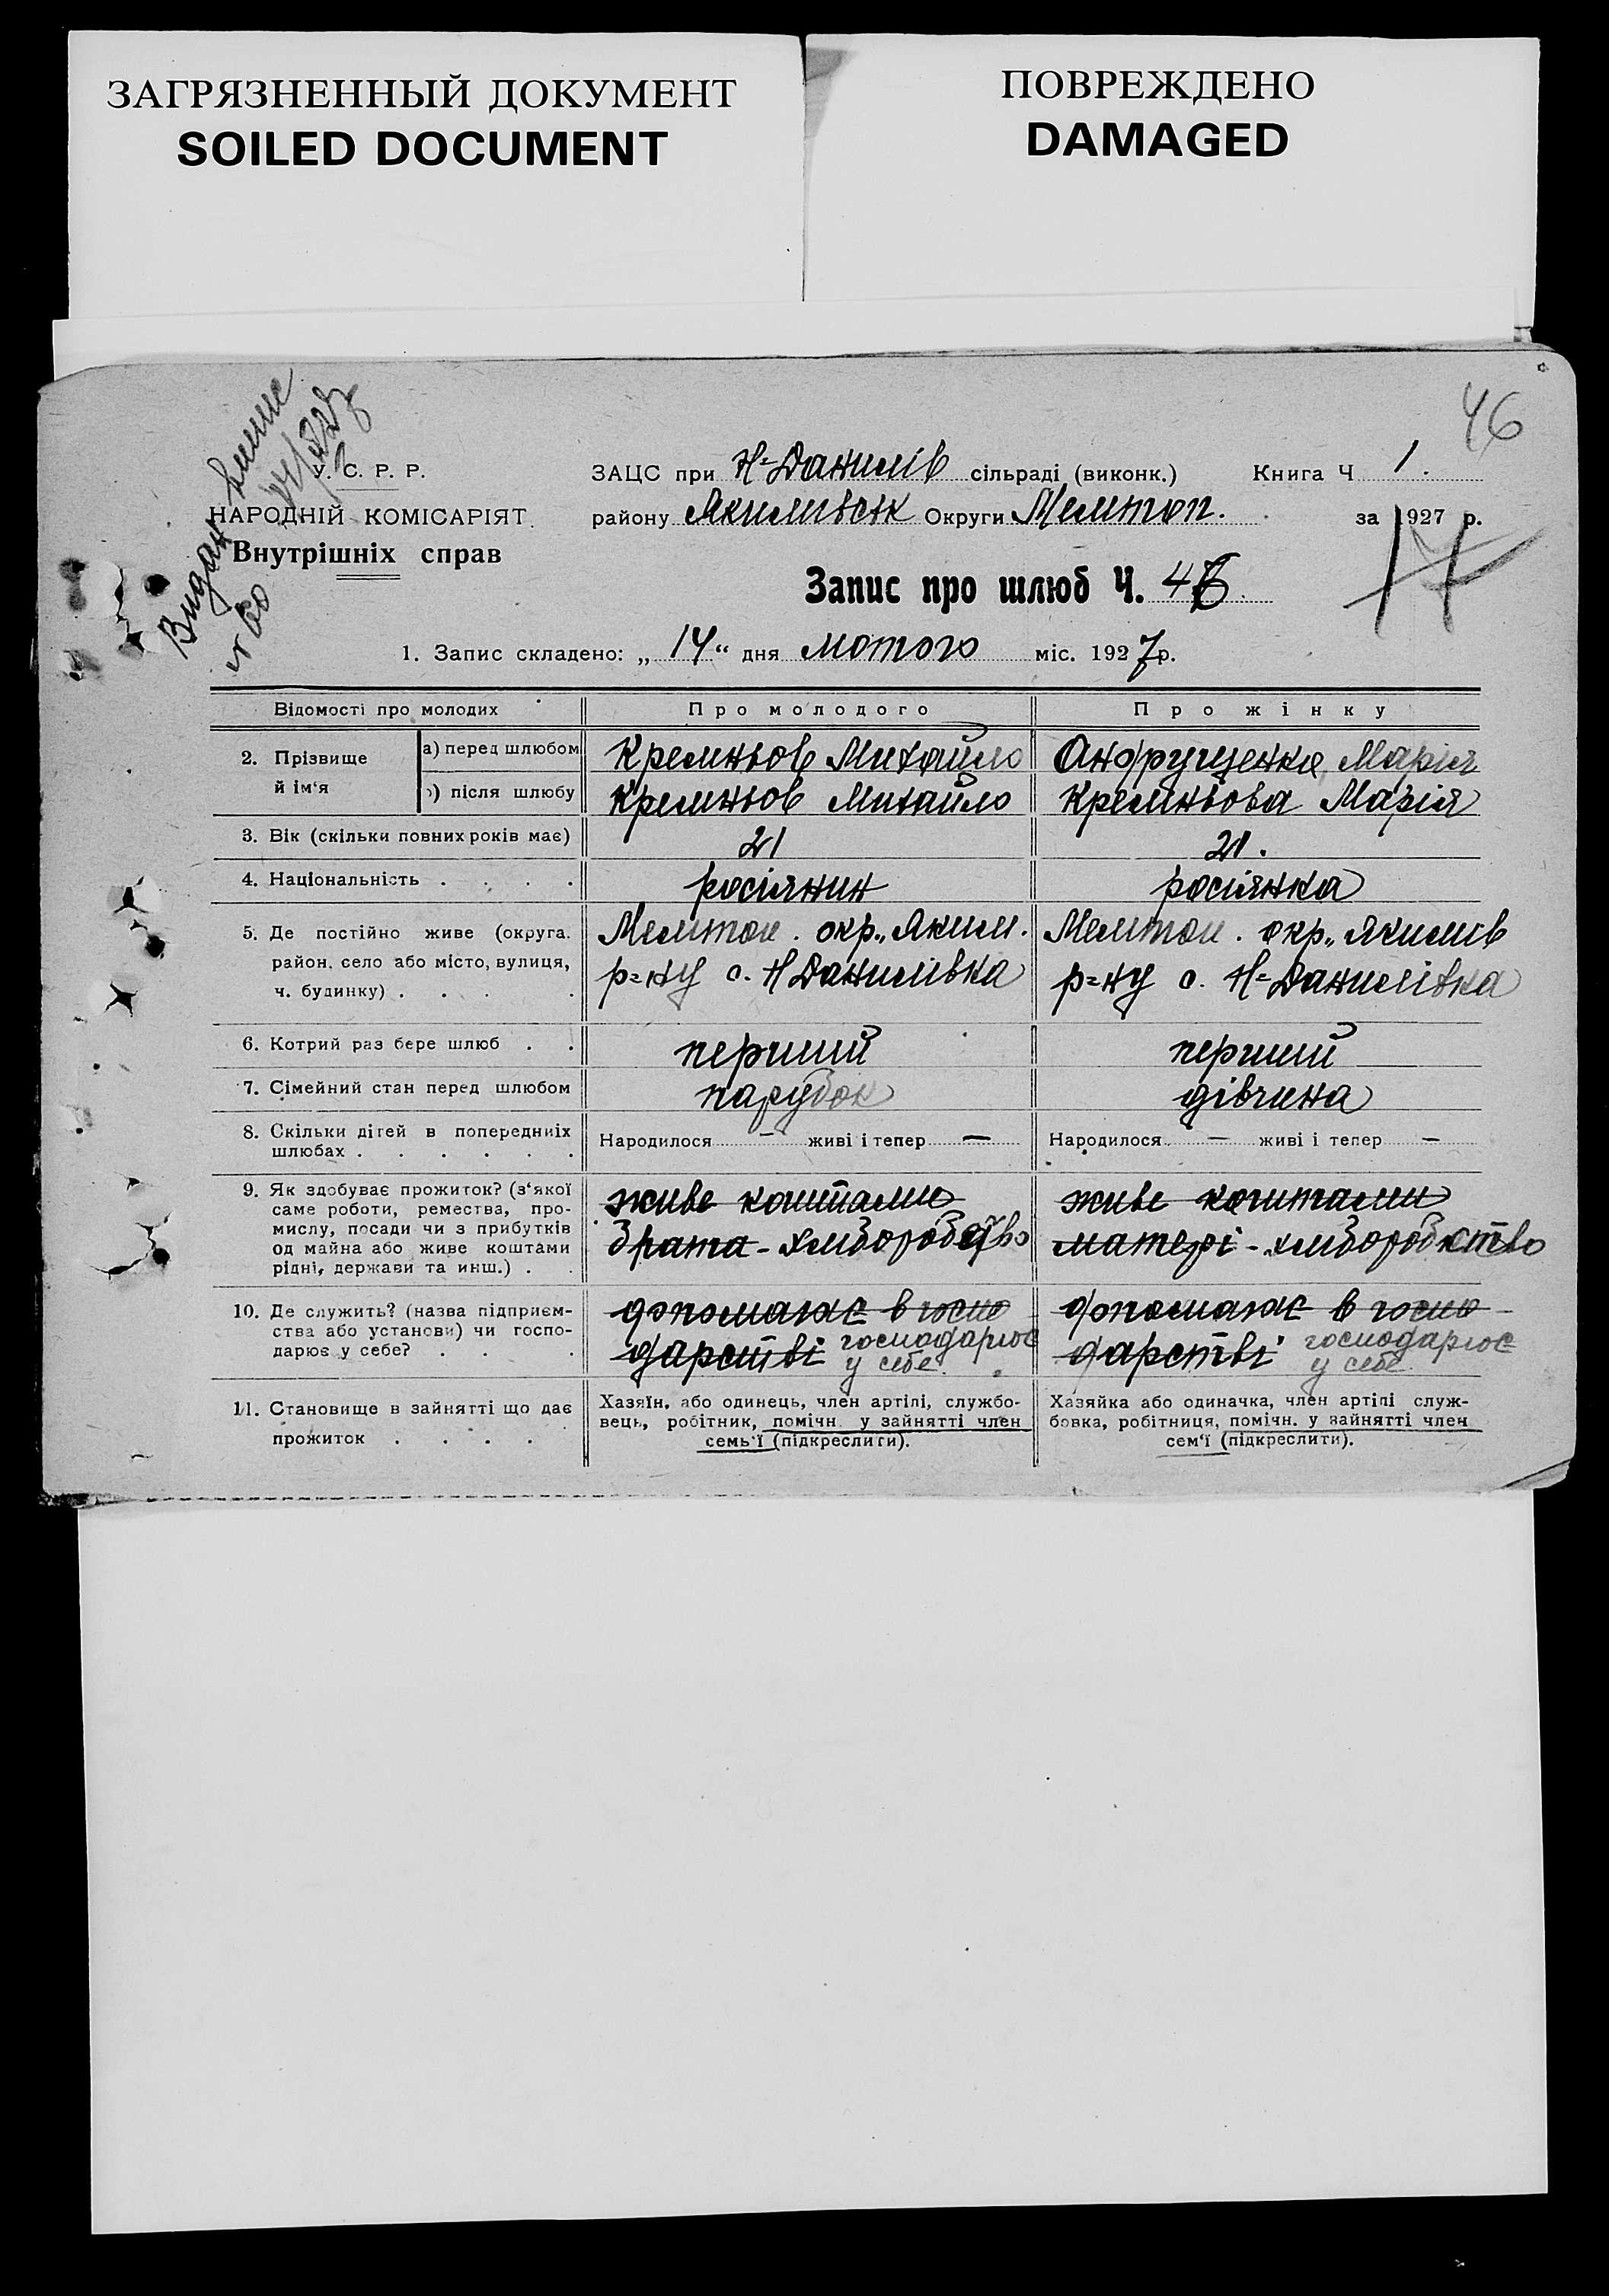 ЗАГРЯЗНЕННЫЙ ДОКУМЕНТ
SOILED DOCUMENT
ПОВРЕЖДЕНО
DAMAGED
46
Видан
С. Р. Р.
НАРОДНІЙ КОМІСАРІЯТ
Внутрішніх справ
ЗАЦС при Н-Данилів сільраді (виконк.) Книга Ч 1.
району Якимівськ Округи Мелітоп. за 1927 р.
Запис про шлюб Ч. 46
1. Запис складено: „14“ дня лютого міс. 1927 р.
Відомості про молодих Про молодого Про жінку
2. Прізвище й ім‘я
а) перед шлюбом Кремньов Михайло Андрущенко Марія
б) після шлюбу Кремньов Михайло Кремньова Марія
3. Вік (скільки повних років має) 21 21.
4. Національність . . . . росіянин росіянка
5. Де постійно живе (округа, Мелітоп. окр., Яким. Мелітоп. окр., Якимів
район, село або місто, вулиця, р=ну с. Н Данилівка р=ну с. Н=Данилівка
ч. будинку) . . . .
6. Котрий раз бере шлюб . . перший перший
7. Сімейний стан перед шлюбом парубок дівчина
8. Скільки дітей в попередніх Народилося — живі і тепер — Народилося — живі і тепер —
шлюбах . . . . . .
9. Як здобуває прожиток? (з‘якої живе коштами живе коштами
саме роботи, ремества, про-
мислу, посади чи з прибутків брата - хліборобство матері - хліборобство
од майна або живе коштами
рідні, держави та инш.) . .
10. Де служить? (назва підприєм- допомагає в госпо допомагає в госпо-
ства або установи) чи госпо- дарстві господарює дарстві господарює
дарює у себе? . . . у себе. у себе
11. Становище в зайнятті що дає Хазяїн, або одинець, член артілі, службо- Хазяйка або одиначка, член артілі служ-
прожиток . . . . вець, робітник, помічн. у зайнятті член бовка, робітниця, помічн. у зайнятті член
семь‘ї (підкреслити). сем‘ї (підкреслити).